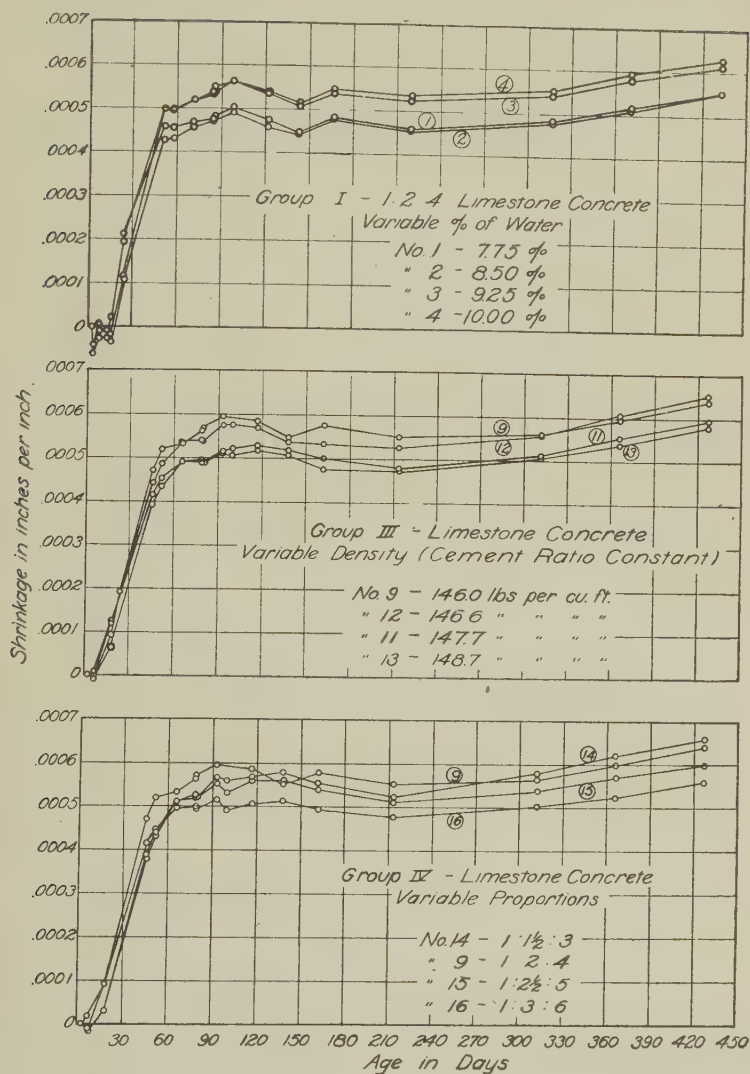 Shrinkage in inches per inch.
.0007
.0006
.0005
.0004
.0003
.0002
.0001
0
④
③
①
②
Group I - 1:2:4 Limestone Concrete
Variable % of Water
No. 1 - 7.75 %
" 2 - 8.50 %
" 3 - 9.25 %
" 4 - 10.00 %
.0007
.0006
.0005
.0004
.0003
.0002
.0001
0
⑨
⑫
⑪
⑬
Group III - Limestone Concrete
Variable Density (Cement Ratio Constant)
No. 9 - 146.0 lbs per cu. ft.
" 12 - 146.6 " " " "
" 11 - 147.7 " " " "
" 13 - 148.7 " " " "
.0007
.0006
.0005
.0004
.0003
.0002
.0001
0
⑨
⑭
⑮
⑯
Group IV - Limestone Concrete
Variable Proportions
No. 14 - 1:1½:3
" 9 - 1 2:4
" 15 - 1:2½:5
" 16 - 1:3:6
30 60 90 120 150 180 210 240 270 300 330 360 390 420 450
Age in Days